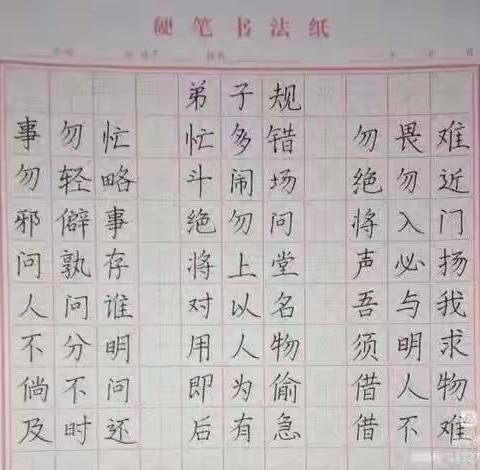 硬笔书法纸
弟子规
事勿忙 忙多错 勿畏难
勿轻略 斗闹场 绝勿近
邪僻事 绝勿问 将入门
问孰存 将上堂 声必扬
人问谁 对以名 吾与我
不分明 用人物 须明求
倘不问 即为偷 借人物
及时还 后有急 借不难